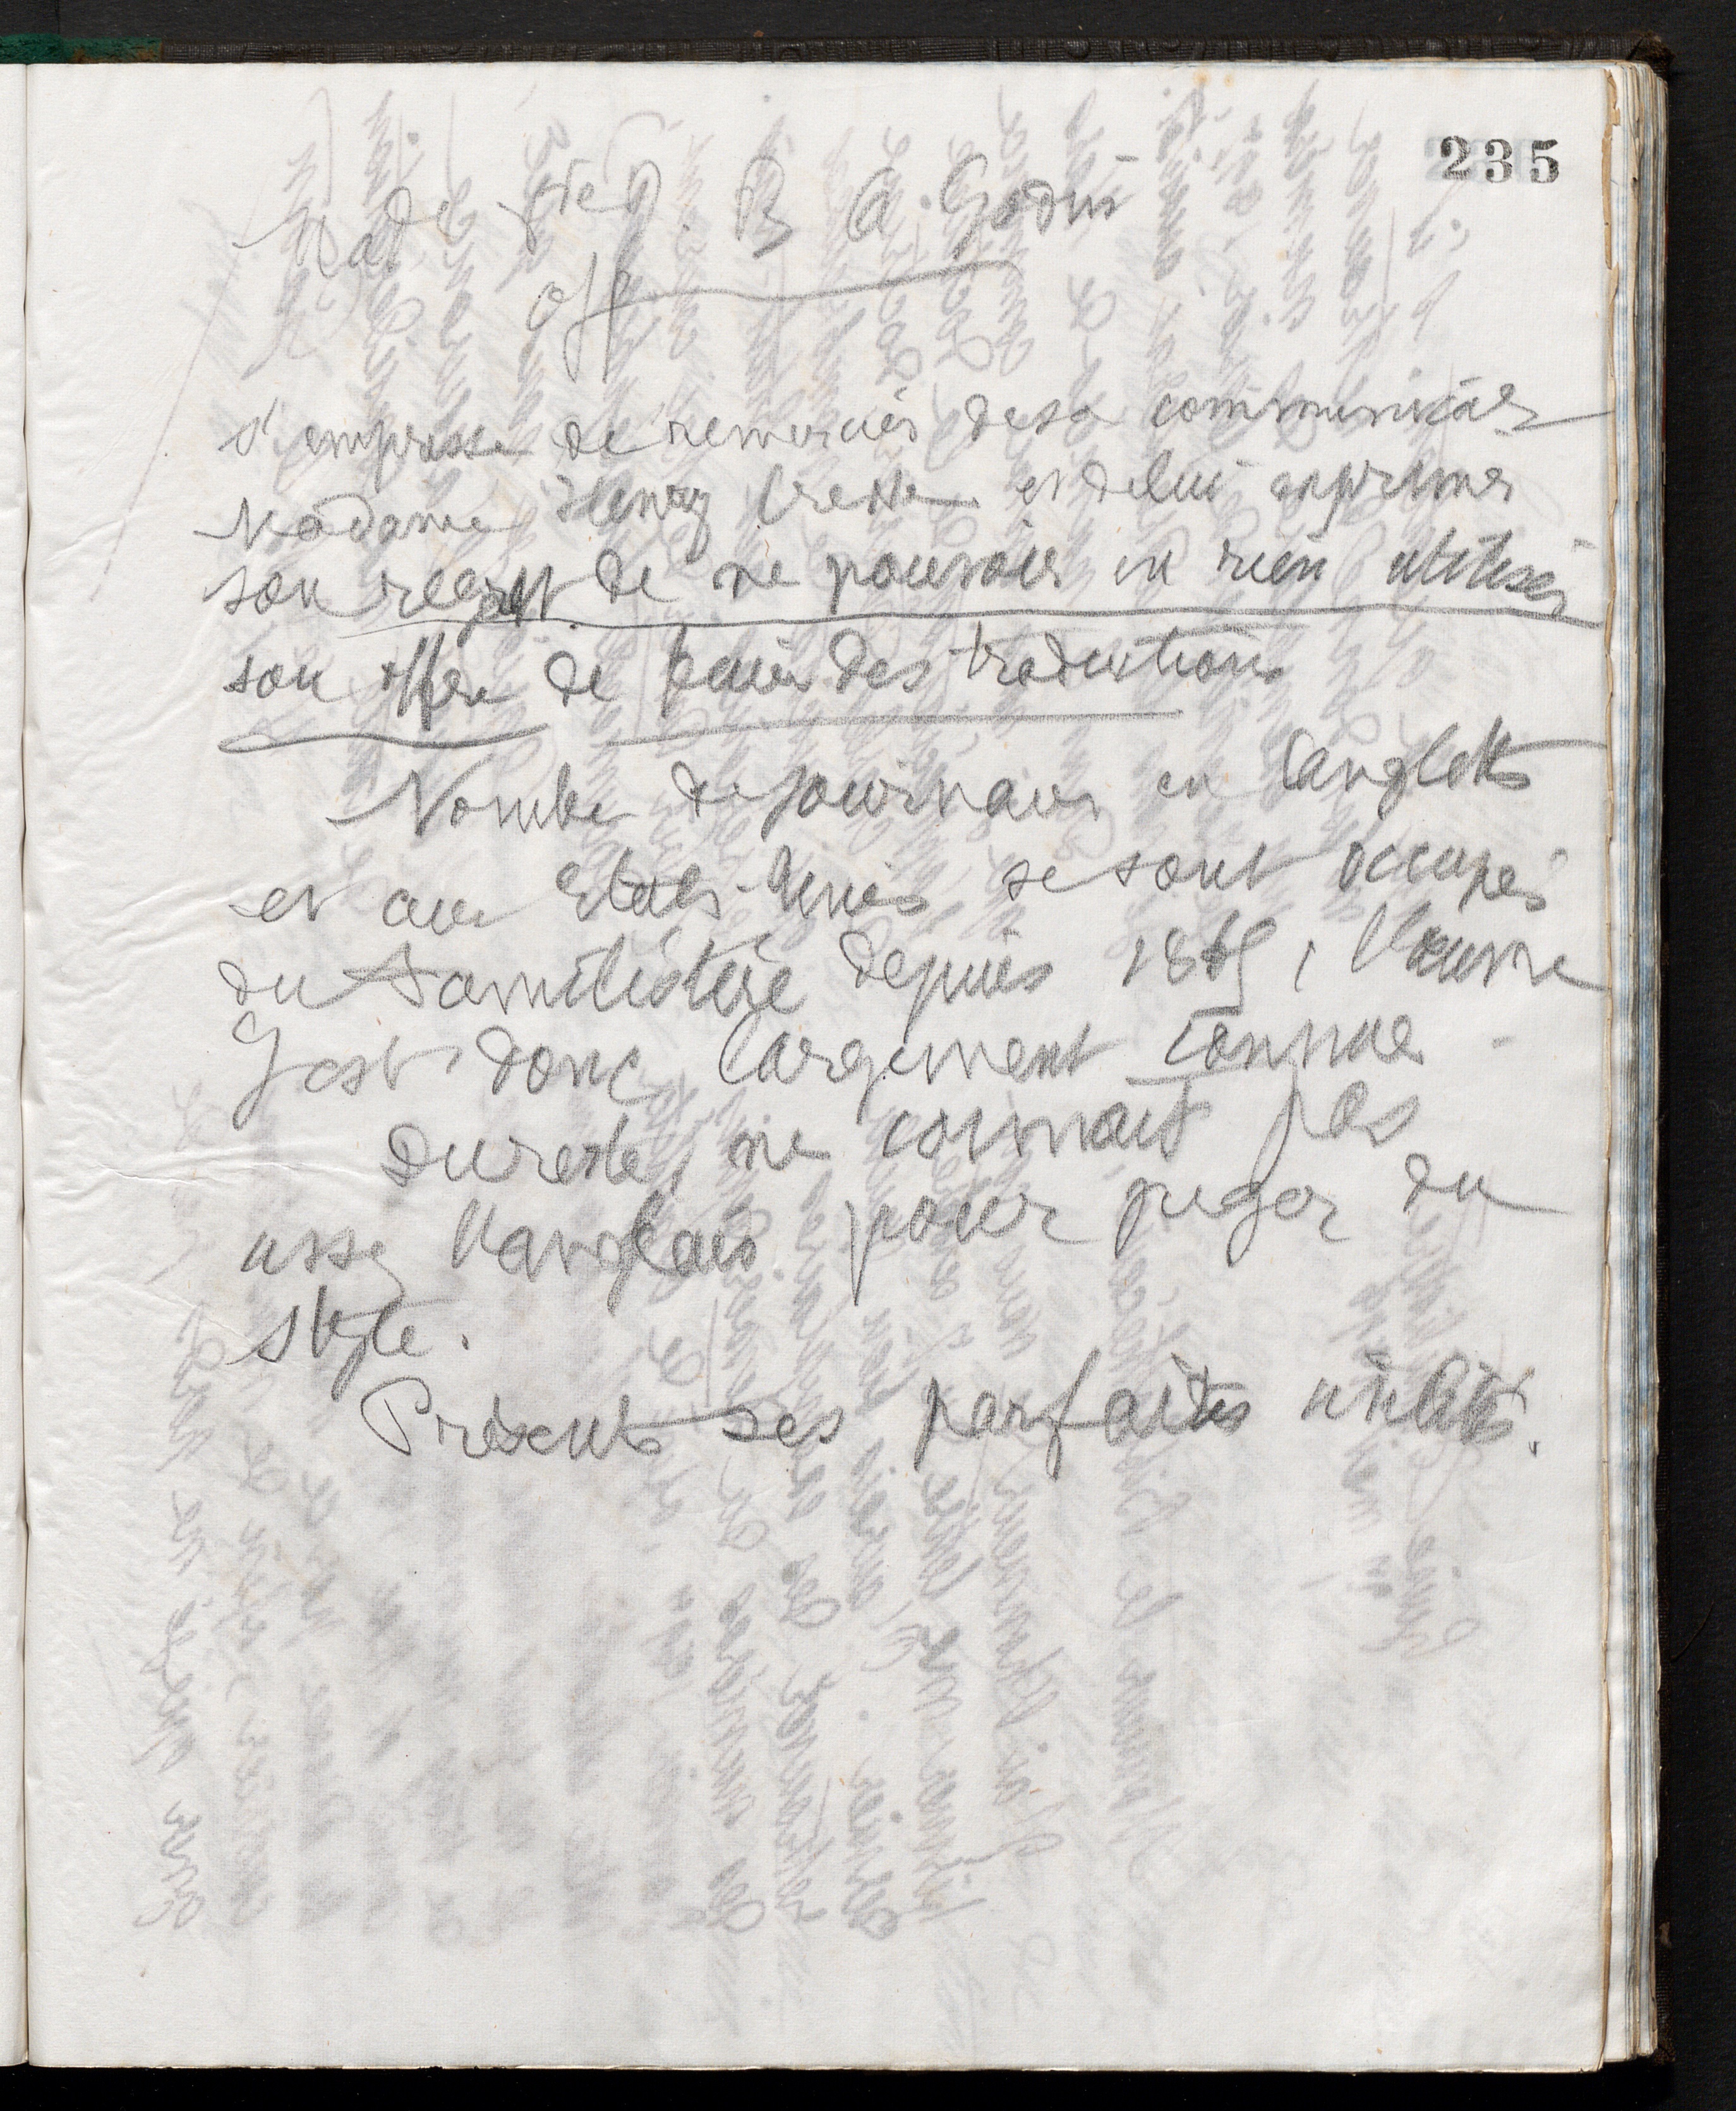 235
Made Vve J. B. A. Godin
off
s'empresse de remercier de sa communication
Madame Henry et de lui exprimer
son regret de ne pouvoir en rien utiliser
son offre de faire des traductions
Nombre de journaux en Anglette
et aux Etats-Unis se sont occupés
du Familistère depuis 1865, l'œuvre
y est donc largement connue.
Du reste, ne connait pas
assez l'anglais pour juger du
style.
Présente ses parfaites civilités.